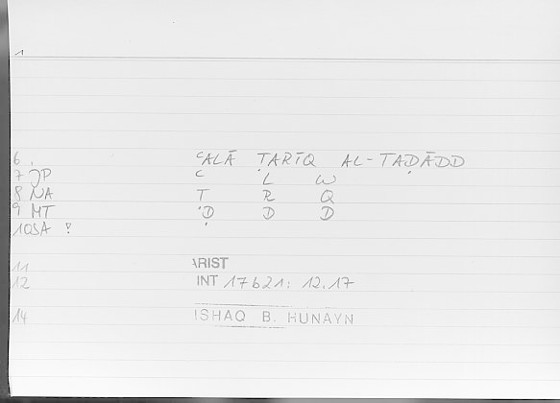 1
6. ʿALĀ ṬARĪQ AL-TAḌĀDD
7 JP ʿ L W
8 NA Ṭ R Q
9 MT Ḍ D D
10SA
11 ARIST
12 INT 17b21: 12.17
14 ISHAQ B. HUNAYN